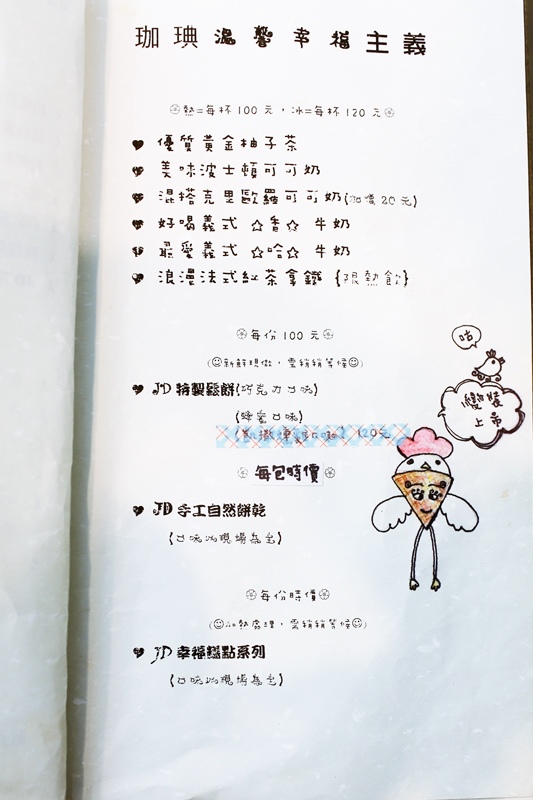 珈琠溫馨幸福主義
熱=每杯100元,冰=每杯120元
優質黃金柚子茶
美味波士頓可可奶
混搭克里歐羅可可奶(加價20元)
好喝義式☆香☆牛奶
最愛義式☆哈☆牛奶
浪漫法式紅茶拿鐵{限熱飲}
每份100元
(新鮮現做,需稍稍等候)
JD特製鬆餅(巧克力口味)
(蜂蜜口味)
120元
每包時價
JD手工自然餅乾
{口味以現場為主}
每份時價
(加熱處理,需稍稍等候)
JD幸福糕點系列
{口味以現場為主}
咕
變裝
上帝